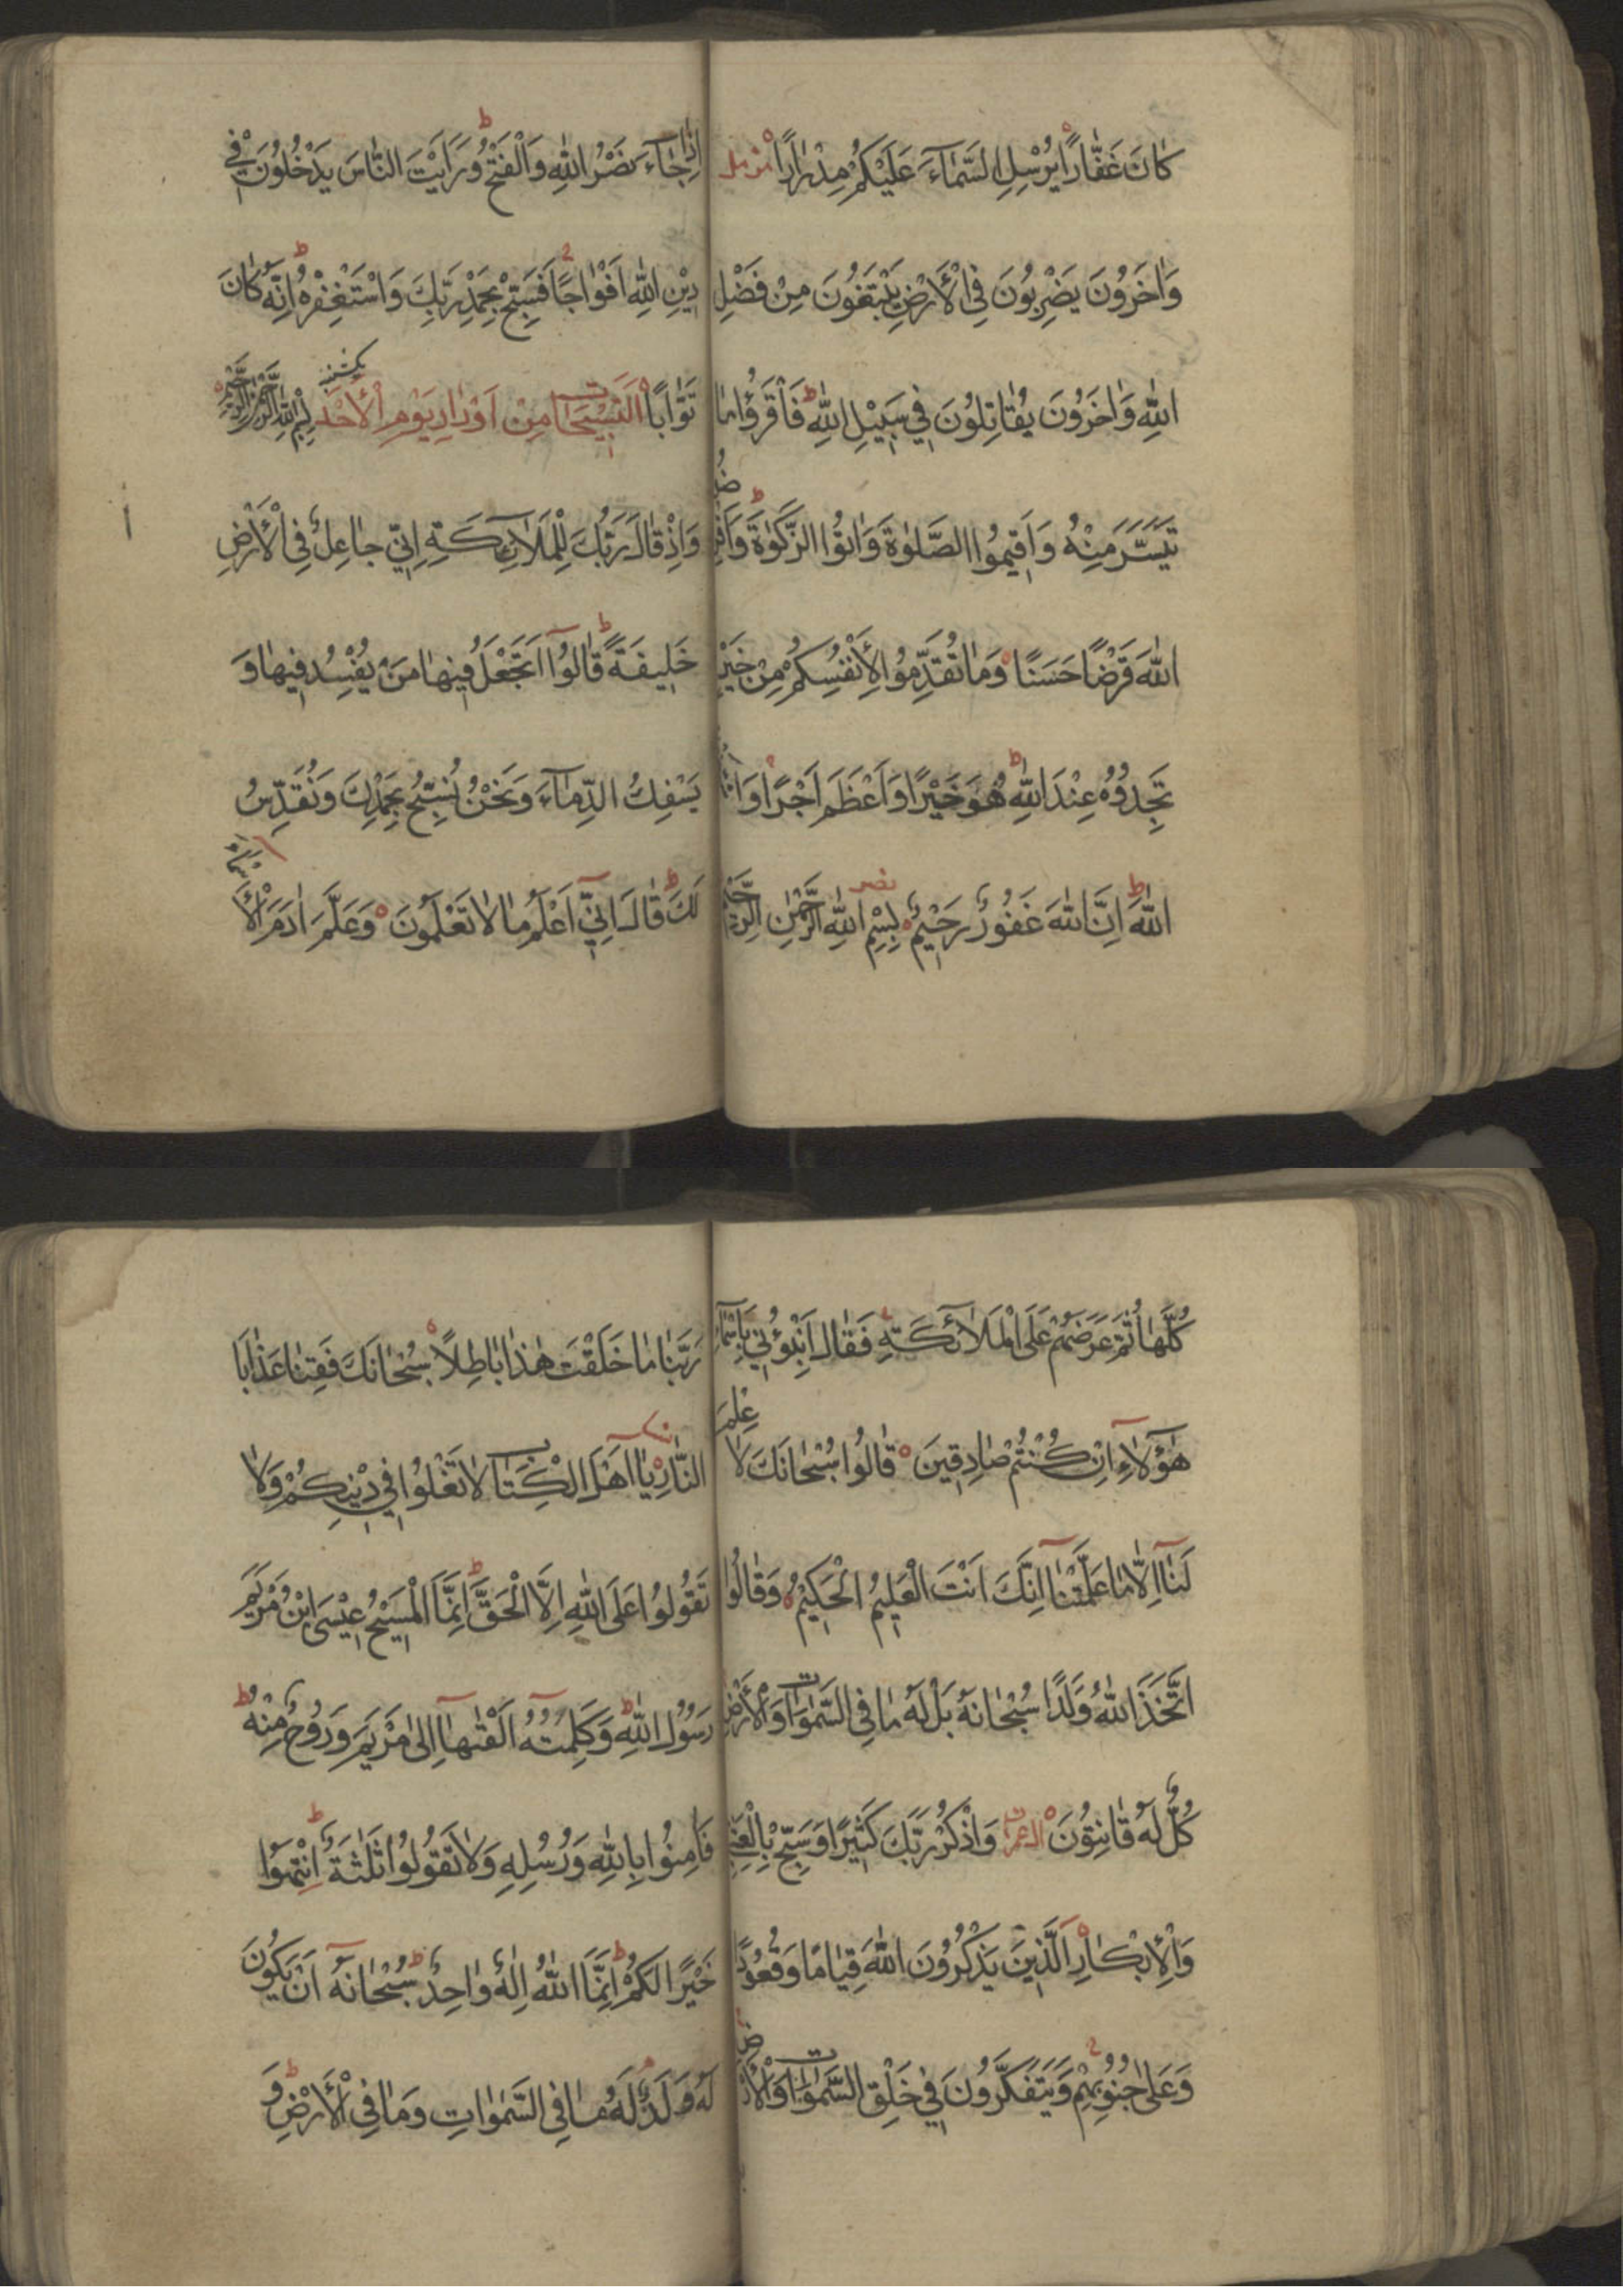 كَانَ غَفَّارًا يُرْسِلِ السَّمَآءَ عَلَيْكُمْ مِدْرَارًا مزمل
وَاٰخَرُونَ يَضْرِبُونَ فِي الْأَرْضِ يَبْتَغُونَ مِنْ فَضْلِ
اللّٰهِ وَاٰخَرُونَ يُقَاتِلُونَ فِي سَبِيْلِ اللّٰهِ ط فَاقْرَؤُا مَا
تَيَسَّرَ مِنْهُ وَاَقِيمُوا الصَّلٰوةَ وَاٰتُوا الزَّكٰوةَ ط وَاَقْرِضُوا
اللّٰهَ قَرْضًا حَسَنًا وَمَا تُقَدِّمُوا لِأَنْفُسِكُمْ مِنْ خَيْرٍ
تَجِدُوُهُ عِنْدَ اللّٰهِ ط هُوَ خَيْرًا وَاَعْظَمَ اَجْرًا وَاسْتَغْفِرُوا
اللّٰهَ ط اِنَّ اللّٰهَ غَفُوُرٌ رَحِيْمٌ نصر بِسْمِ اللّٰهِ الرَّحْمٰنِ الرَّحِيْمِ
اِذَا جَآءَ نَصْرُ اللّٰهِ وَالْفَتْحُ ط وَرَاَيْتَ النَّاسَ يَدْخُلُوُنَ فِي
دِيْنِ اللّٰهِ اَفْوَاجًا فَسَبِّحْ بِحَمْدِ رَبِّكَ وَاسْتَغْفِرْهُ ط اِنَّهُ كَانَ
تَوَّابًا اَلتَّسْبِيْحَات مِنْ اَوْرَادِ يَوْمِ الْأَحَدْ يكشنبه بِسْمِ اللّٰهِ الرَّحْمٰنِ الرَّحِيْمِ
وَاِذْ قَالَ رَبُّكَ لِلْمَلَآئِكَةِ اِنِّي جَاعِلٌ فِي الْأَرْضِ
خَلِيفَةً ط قَالُوُآ اَتَجْعَلُ فِيهَا مَنْ يُفْسِدُ فِيهَا وَ
يَسْفِكُ الدِّمَآءَ وَنَحْنُ نُسَبِّحُ بِحَمْدِكَ وَنُقَدِّسُ
لَكَ ط قَالَ اِنِّيٓ اَعْلَمُ مَا لَا تَعْلَمُونَ وَعَلَّمَ اٰدَمَ الْأَسْمَآءَ
كُلَّهَا ثُمَّ عَرَضَهُمْ عَلَى الْمَلَآئِكَةِ فَقَالَ اَنْبِؤُنِي بِاَسْمَآءِ
هٰؤُلَآءِ اِنْ كُنْتُمْ صَادِقِينَ قَالُوا سُبْحَانَكَ لَا عِلْمَ
لَنَآ اِلَّا مَا عَلَّمْتَنَا اِنَّكَ اَنْتَ الْعَلِيمُ الْحَكِيْمُ وَقَالُوا
اتَّخَذَ اللّٰهُ وَلَدًا سُبْحَانَهُ بَلْ لَهُ مَا فِي السَّمٰوَات وَالْأَرْضِ
كُلٌّ لَهُ قَانِتُوُنَ ال عمران وَاذْكُرْ رَبَّكَ كَثِيْرًا وَسَبِّحْ بِالْعَشِيِّ
وَالْإِبْكَارِ اَلَّذِينَ يَذْكُرُونَ اللّٰهَ قِيَامًا وَقُعُوُدًا
وَعَلٰى جُنُوُبِهِمْ وَيَتَفَكَّرُونَ فِي خَلْقِ السَّمٰوَات وَالْأَرْضِ
رَبَّنَا مَا خَلَقْتَ هٰذَا بَاطِلًا سُبْحَانَكَ فَقِنَا عَذَابَ
النَّارِ نسآء يَا اَهْلَ الْكِتَاب لَا تَغْلُوا فِي دِيْنِكُمْ وَلَا
تَقُوُلُوُا عَلَى اللّٰهِ اِلَّا الْحَقَّ ط اِنَّمَا الْمَسِيْحُ عِيْسَى ابْنُ مَرْيَمَ
رَسُوُلُ اللّٰهِ ط وَكَلِمَتُهُ اَلْقٰيهَآ اِلٰى مَرْيَمَ وَرُوُحٌ مِنْهُ ط
فَاٰمِنُوا بِاللّٰهِ وَرُسُلِهِ وَلَا تَقُوُلُوُا ثَلٰثَةٌ ط اِنْتَهُوْا
خَيْرًا لَكُمْ ط اِنَّمَا اللّٰهُ اِلٰهٌ وَاحِدٌ ط سُبْحَانَهُ اَنْ يَكُوُنَ
لَهُ وَلَدٌ لَهُ مَا فِي السَّمٰوَاتِ وَمَا فِي الْأَرْضِ ط وَ